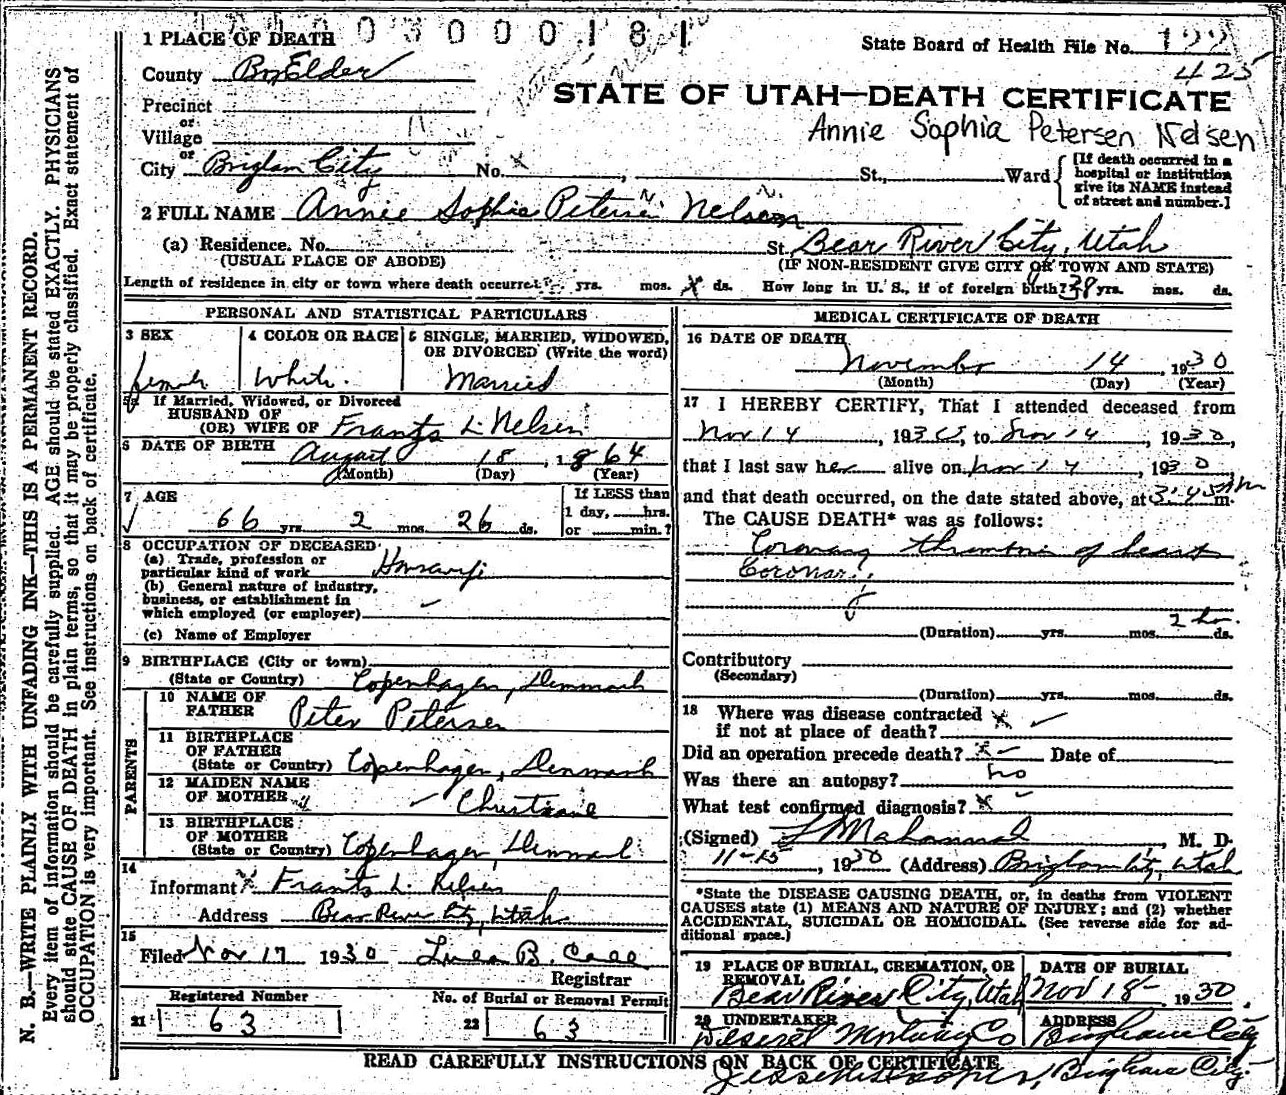 03000181
1 PLACE OF DEATH
State Board of Health File No.
425
County BoxElder
STATE OF UTAH—DEATH CERTIFICATE
Precinct
or
Annie Sophia Petersen Nelsen
Village
or
City Brigham City No. x St., Ward
[If death occurred in a
hospital or institution
give its NAME instead
of street and number.]
2 FULL NAME Annie Sophie Petersen Nelson
(a) Residence. No. St. Bear River City, Utah
(USUAL PLACE OF ABODE) (IF NON-RESIDENT GIVE CITY OR TOWN AND STATE)
Length of residence in city or town where death occurred yrs. mos. x ds. How long in U. S., if of foreign birth? 38 yrs. mos. ds.
PERSONAL AND STATISTICAL PARTICULARS
3 SEX 4 COLOR OR RACE 5 SINGLE, MARRIED, WIDOWED,
OR DIVORCED (Write the word)
female White. Married
If Married, Widowed, or Divorced
HUSBAND OF
(OR) WIFE OF Frantz L. Nelsen
6 DATE OF BIRTH August 18, 1864
(Month) (Day) (Year)
7 AGE
66 yrs 2 mos. 26 ds.
If LESS than
1 day, hrs.
or min.?
8 OCCUPATION OF DECEASED
(a) Trade, profession or
particular kind of work Housewife
(b) General nature of industry,
business, or establishment in
which employed (or employer)
(c) Name of Employer
9 BIRTHPLACE (City or town)
(State or Country) Copenhagen, Denmark
PARENTS
10 NAME OF
FATHER Peter Petersen
11 BIRTHPLACE
OF FATHER
(State or Country) Copenhagen, Denmark
12 MAIDEN NAME
OF MOTHER
13 BIRTHPLACE
OF MOTHER
(State or Country) Copenhagen, Denmark
14
Informant x Frants L. Nelsen
Address Bear River City, Utah
15
Filed Nov 17 1930
Registrar
Registered Number No. of Burial or Removal Permit
21 63 22 63
MEDICAL CERTIFICATE OF DEATH
16 DATE OF DEATH
November 14, 1930
(Month) (Day) (Year)
17 I HEREBY CERTIFY, That I attended deceased from
Nov 14, 1930, to Nov 14, 1930,
that I last saw her alive on Nov 14, 1930
and that death occurred, on the date stated above, at 3:45 AM m.
The CAUSE DEATH* was as follows:
Coronary thrombosis of heart
Coronary
2 hr.
(Duration) yrs. mos. ds.
Contributory
(Secondary)
(Duration) yrs. mos. ds.
18 Where was disease contracted
if not at place of death? x
Did an operation precede death? x Date of
Was there an autopsy? no
What test confirmed diagnosis? x
(Signed) M. D.
11-15, 1930 (Address) Brigham City, Utah
*State the DISEASE CAUSING DEATH, or, in deaths from VIOLENT
CAUSES state (1) MEANS AND NATURE OF INJURY; and (2) whether
ACCIDENTAL, SUICIDAL OR HOMICIDAL. (See reverse side for ad-
ditional space.)
19 PLACE OF BURIAL, CREMATION, OR
REMOVAL
Bear River City, Utah
DATE OF BURIAL
Nov 18 1930.
20 UNDERTAKER
Deseret Mortuary Co
ADDRESS
Brigham City
READ CAREFULLY INSTRUCTIONS ON BACK OF CERTIFICATE
Brigham City.
N. B.—WRITE PLAINLY WITH UNFADING INK—THIS IS A PERMANENT RECORD.
Every item of information should be carefully supplied. AGE should be stated EXACTLY. PHYSICIANS
should state CAUSE OF DEATH in plain terms, so that it may be properly classified. Exact statement of
OCCUPATION is very important. See instructions on back of certificate.